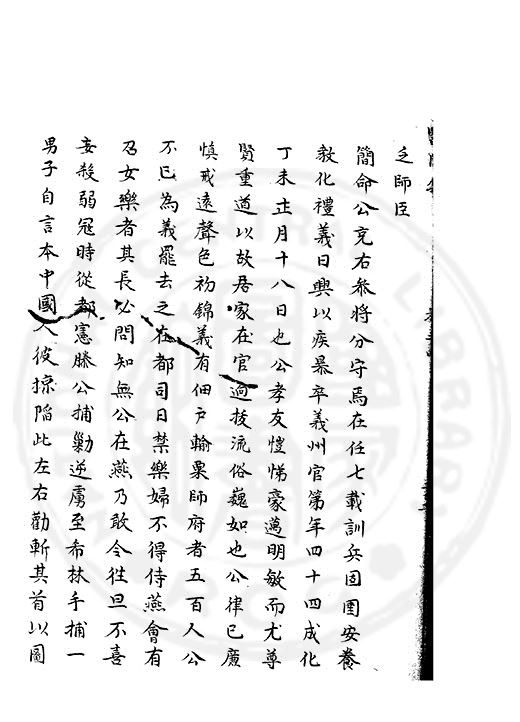 之師臣
簡命公充右叅將分守焉在任七載訓兵固圉安養
敎化禮義日興以疾暴卒義州官第年四十四成化
丁未正月十八日也公孝友愷悌豪邁明敏而尤尊
賢重道以故居家在官逈拔流俗巍如也公律己廉
慎戒遠聲色初錦義有佃戶輸粟師府者五百人公
不已為義罷去之在都司日禁樂婦不得侍燕會有
召女樂者其長必問知無公在燕乃敢令往旦不喜
妄殺弱冠時從都憲滕公捕勦逆虜至希林手捕一
男子自言本中國人彼掠陷此左右勸斬其首以圖